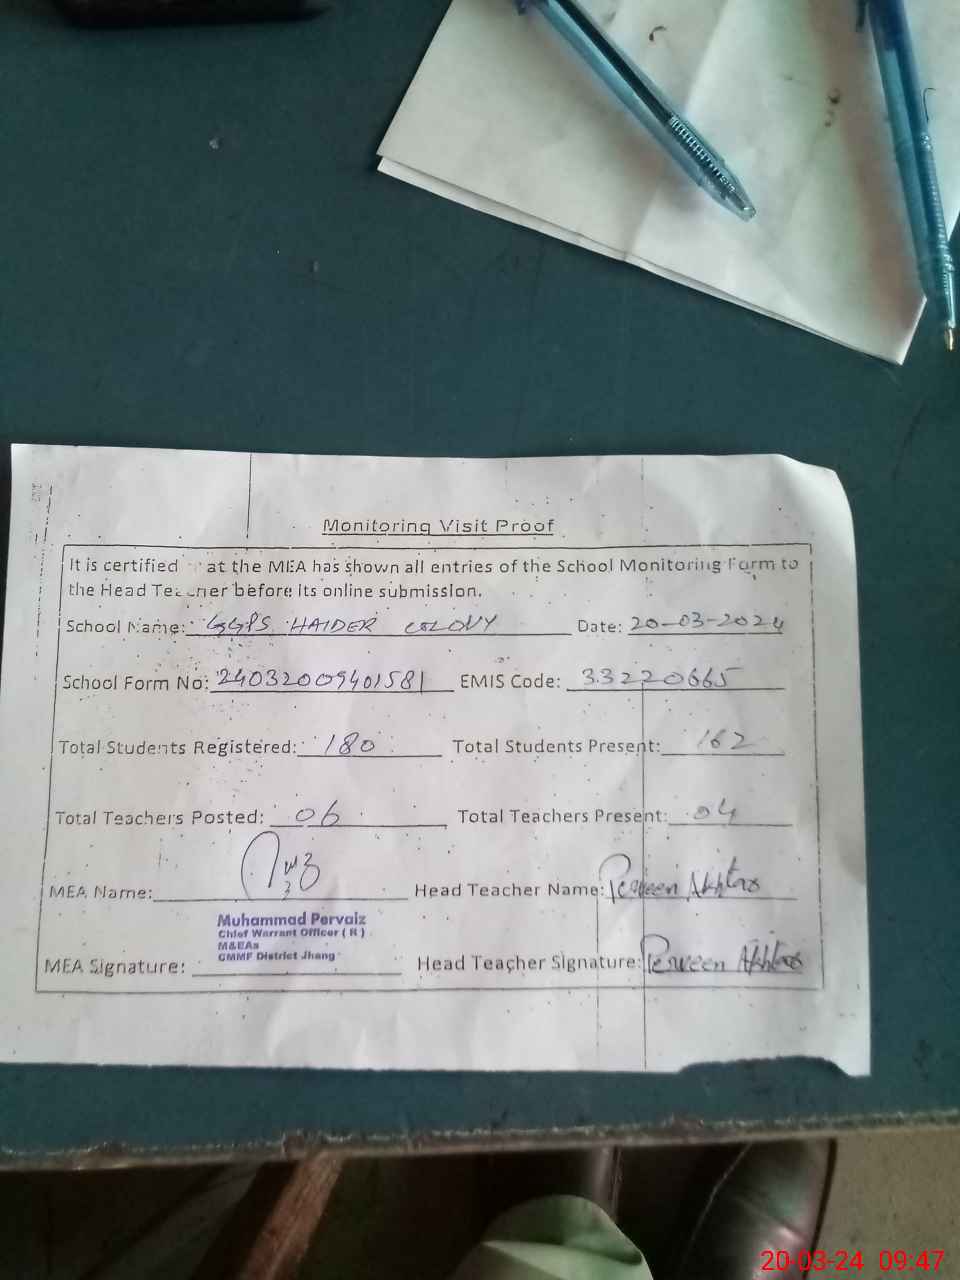 Monitoring Visit Proof
It is certified at the MEA has shown all entries of the School Monitoring Form to
the Head Teacher before its online submission.
School Name: GGPS HAIDER COLONY Date: 20-03-2024
School Form No: 24032009401581 EMIS Code: 33220665
Total Students Registered: 180 Total Students Present: 162
Total Teachers Posted: 06 Total Teachers Present: 04
MEA Name: Head Teacher Name: Perveen Akhtar
Muhammad Pervaiz
Chief Warrant Officer ( R )
M&EAs
CMMF District Jhang
MEA Signature: Head Teacher Signature: Perveen Akhtar
20-03-24 09:47